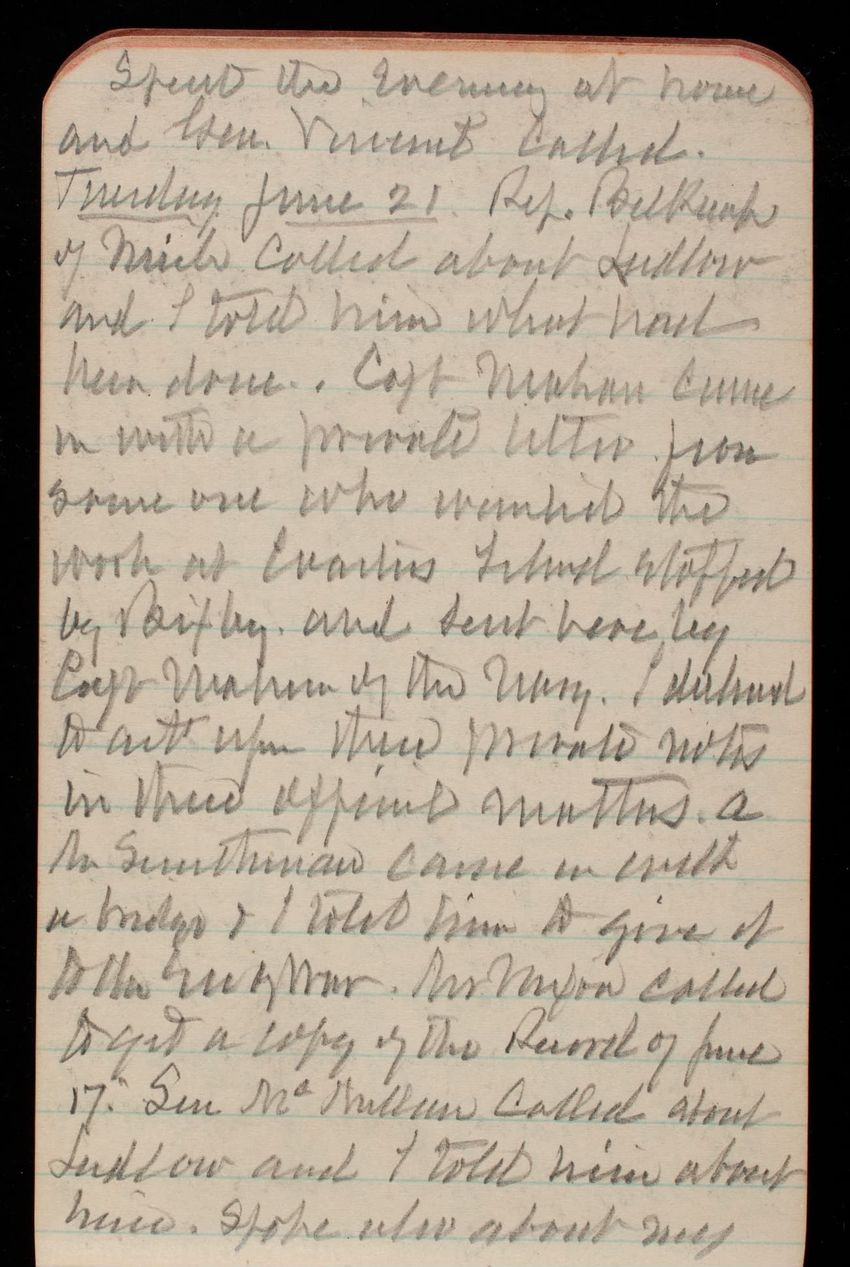 Spent the Evening at home
and Gen. Vincent Called.
Tuesday June 21. Rep. Belknap
of Mich Called about Ludlow
and I told him what had
been done. . Capt Mahan came
in with a private letter from
some one who wanted the
work at Island stopped
by Bixby. and sent here by
Capt Mahan of the Navy. I declined
to act upon these private notes
in these official matters. a
Mr came in with
a bridge & I told him to give it
to the Sec of War. Mr Nixon called
to get a copy of the Record of June
17." Sen Mc Millan Called about
Ludlow and I told him about
him. Spoke also about my